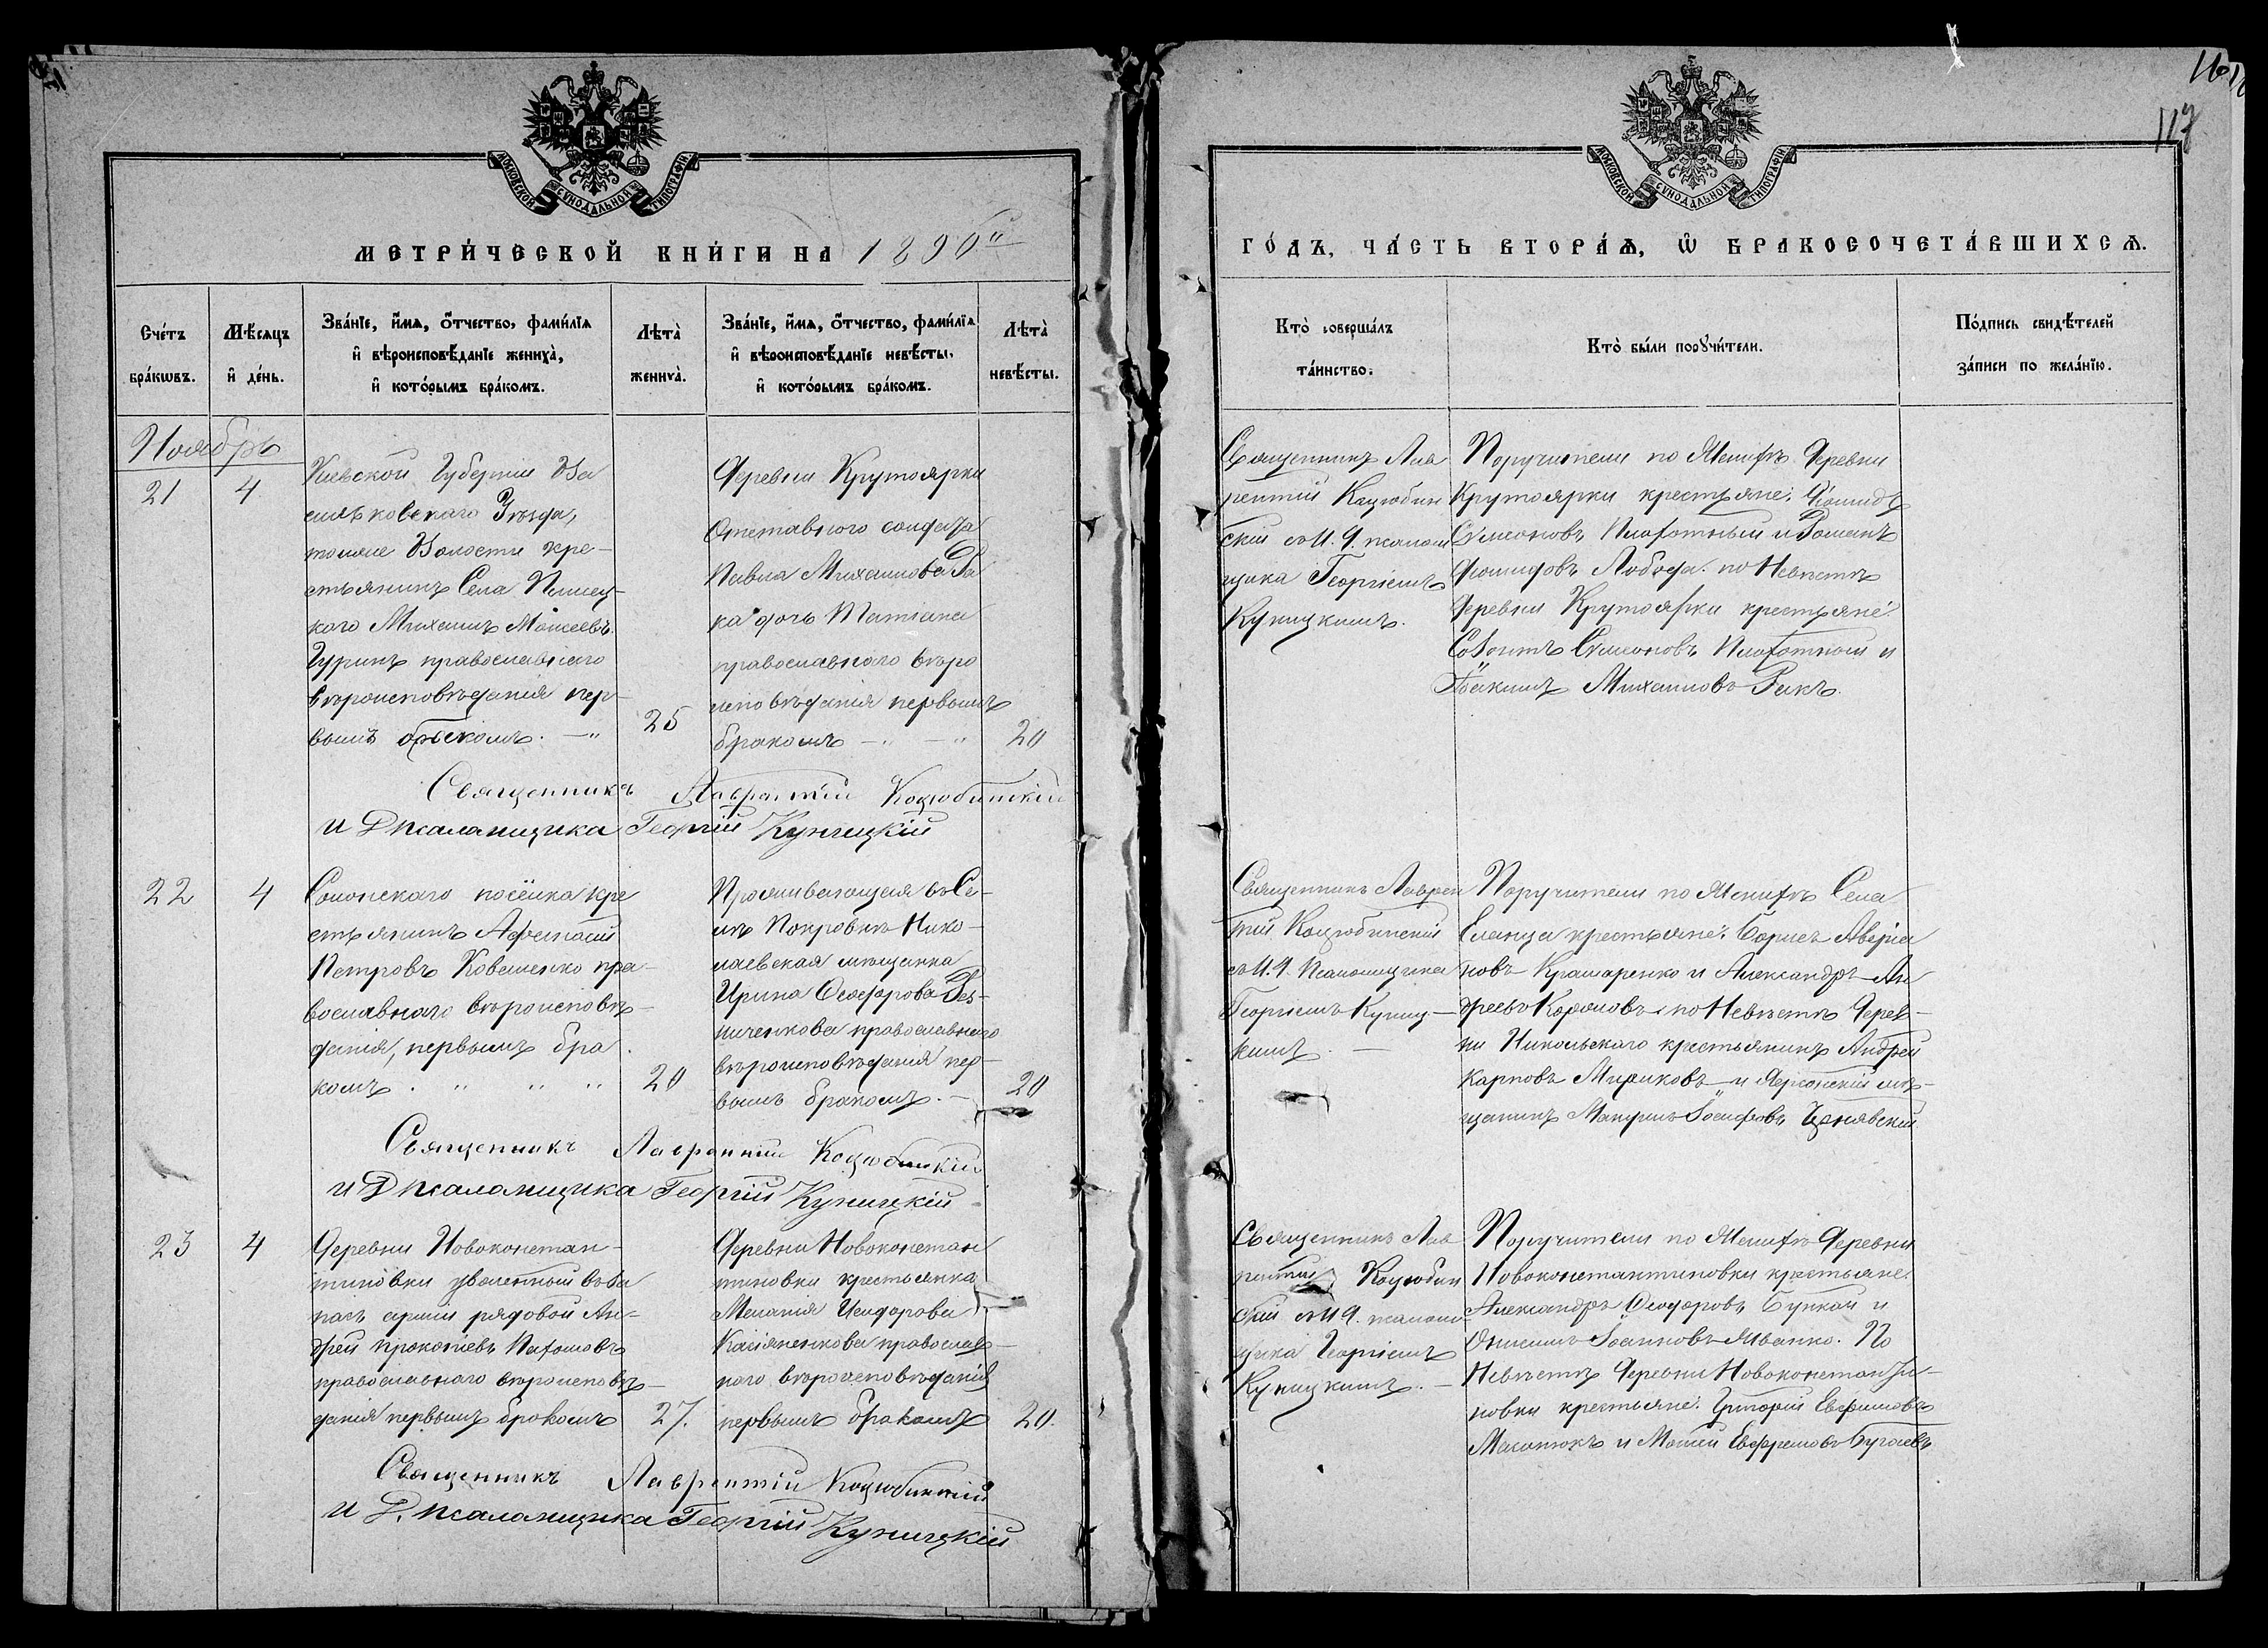 МОСКОВСКОЙ СѴНОДАЛЬНОЙ ТИПОГРАФІИ
МЕТРИ́ЧЕСКОЙ КНИ́ГИ НА 1890й
Сче́тъ бра́кωвъ.
Мѣ́сяцъ и҆ де́нь.
Зва́нїе, и҆́мѧ, ѻ҆́тчество, фами́лїѧ
и҆ вѣроисповѣ́данїе жениха̀,
и҆ кото́рымъ бра́комъ.
Лѣта̀ жениха̀.
Зва́нїе, и҆́мѧ, ѻ҆́тчество, фами́лїѧ
и҆ вѣроисповѣ́данїе невѣ́сты,
и҆ кото́рымъ бра́комъ.
Лѣта̀ невѣ́сты.
Ноябрь
21
4
Кіевской Губерніи Ва
сильковскаго Уѣзда,
Волости кре-
стьянинъ Села
каго Михаилъ Моисеевъ
Гуринъ православнаго
вѣроисповѣданія пер-
вымъ бракомъ. — "
25
Деревни Крутоярки
Отставного солдата
Павла Михаилова Ра
ка дочь Татіана
православнаго вѣро
исповѣданія первымъ
бракомъ — " — "
20
Священникъ Лаврентій Коцюбинскій
и Д псаломщика Георгій Куницкій
22
4
посёлка кре
стьянинъ Афанасій
Петровъ Коваленко пра-
вославнаго вѣроисповѣ-
данія, первымъ бра
комъ . " " "
20
Проживающая въ Се-
лѣ Покровкѣ Нико-
лаевская мѣщанка
Ирина Ѳеодорова Рез-
ниченкова православнаго
вѣроисповѣданія пер-
вымъ бракомъ. —
20
Священникъ Лаврентій Коцюбинскій
и Д псаломщика Георгій Куницкій
23
4
Деревни Новоконстан-
тиновки уволенный въ за
пасъ арміи рядовой Ан-
дрей Прокопіевъ Пахомовъ
православнаго вѣроисповѣ-
данія первымъ бракомъ
27.
Деревни Новоконстан
тиновки крестьянка
Меланія Исидорова
Касіяненкова православ-
наго вѣроисповѣданія
первымъ бракомъ
20.
Священникъ Лаврентій Коцюбинскій
и Д. псаломщика Георгій Куницкій
117
МОСКОВСКОЙ СѴНОДАЛЬНОЙ ТИПОГРАФІИ
ГО́ДЪ, ЧА́СТЬ ВТОРА́Ѧ, Ѽ БРАКОСОЧЕТА́ВШИХСѦ.
Кто̀ соверша́лъ та́инство.
Кто̀ бы́ли порꙋчи́тели.
По́дпись свидѣ́телей
за́писи по жела́нїю.
Священникъ Лав
рентій Коцюбин
скій съ И. Д. псалом
щика Георгіемъ
Куницкимъ.
Поручители по Женихѣ Деревни
Крутоярки крестьяне: Діомидъ
Сѵмеоновъ Плахотный и Романъ
Діомидовъ Лобода. по Невѣстѣ
Деревни Крутоярки крестьяне:
Созонтъ Сѵмеоновъ Плахотный и
Іоакимъ Михаиловъ Ракъ.
Священникъ Лаврен
тій Коцюбинскій
съ И. Д. Псаломщика
Георгіемъ Куниц-
кимъ. —
Поручители по Женихѣ Села
Еланца крестьяне: Борисъ Аверіа
новъ Крамаренко и Александръ Ан
дреевъ по Невѣстѣ Дерев-
ни Никольскаго крестьянинъ Андрей
Карповъ Мириковъ и Херсонскій мѣ-
щанинъ Іосифовъ Чернявскій
Священникъ Лав
рентій Коцюбин
скій съ И Д. псалом
щика Георгіемъ
Куницкимъ. —
Поручители по Женихѣ Деревни
Новоконстантиновки крестьяне:
Александръ Ѳеодоровъ и
Онисимъ Іоанновъ Иванко. По
Невѣстѣ Деревни Новоконстанти-
новки крестьяне: Григорій Евфимовъ
и Евфремовъ Бугаевъ